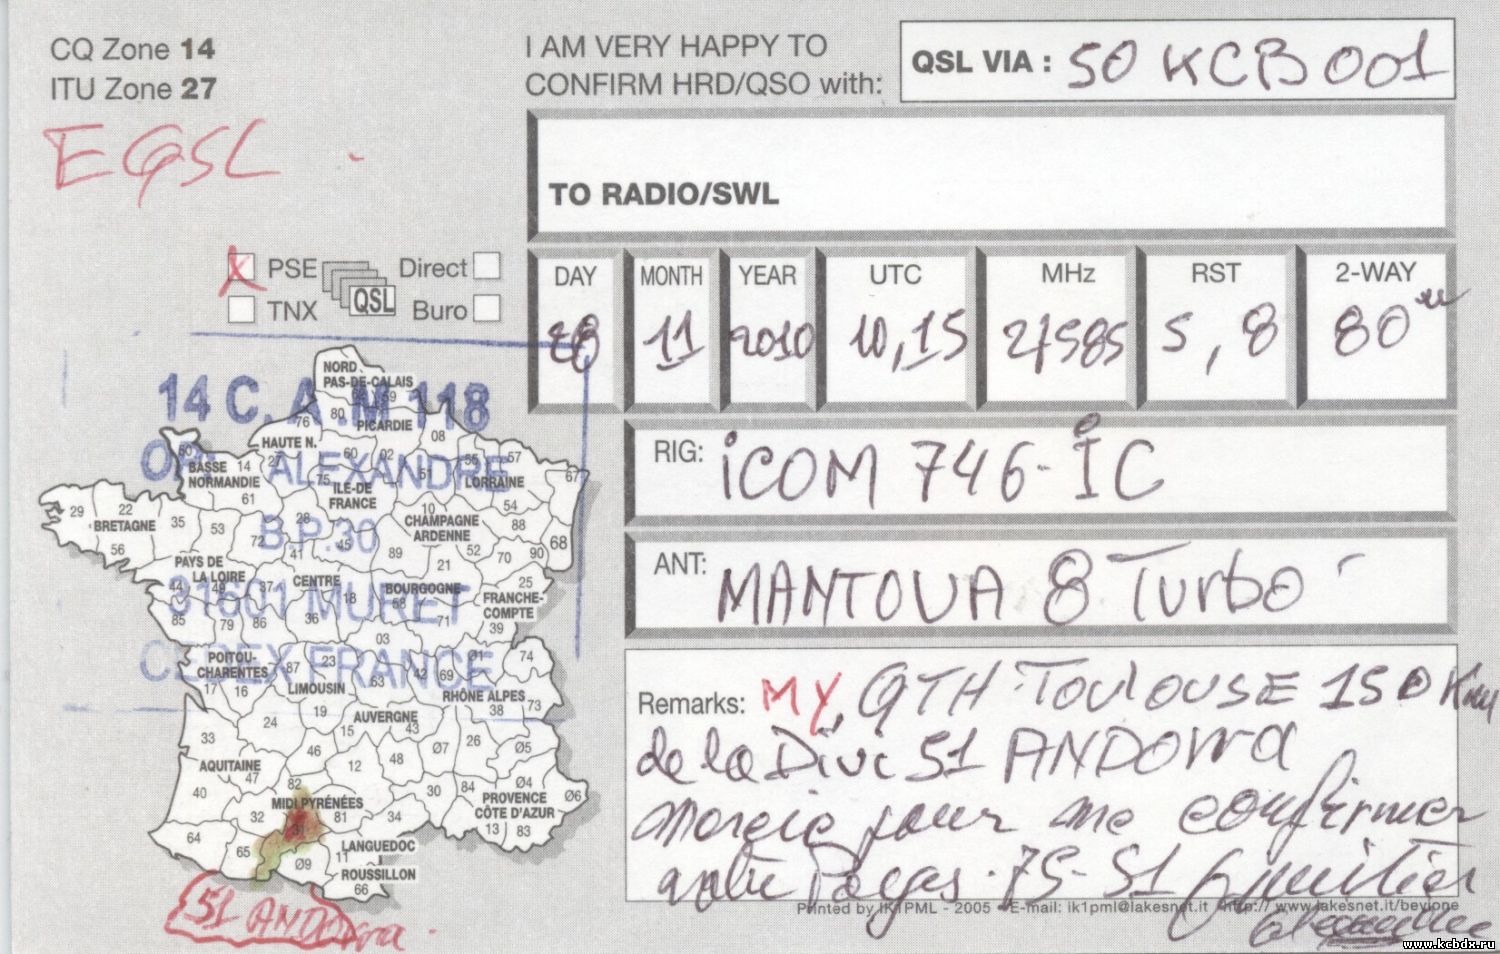 CQ Zone 14
ITU Zone 27
EQSL
I AM VERY HAPPY TO
CONFIRM HRD/QSO with:
QSL VIA : 50 KCB 001
TO RADIO/SWL
X PSE
TNX
QSL
Direct
Buro
DAY MONTH YEAR UTC MHz RST 2-WAY
28 11 2010 10,15 27585 5,8 80
RIG: iCOM 746-IC
ANT: MANTOVA 8 Turbo
Remarks: MY, QTH TOULOUSE 150 Km
de la Div 51 ANDORRA
pour me confirmer
73-51
Printed by IK1PML - 2005 - E-mail: ik1pml@lakesnet.it - http://www.lakesnet.it/bevione
14 C. A. M 118
OP. ALEXANDRE
B.P.30
31601 MURET
CEDEX FRANCE
NORD
PAS-DE-CALAIS
59
80
PICARDIE
76
HAUTE N.
08
50
BASSE
NORMANDIE
14
27
60
02
51
55
57
LORRAINE
67
61
75
ILE-DE
FRANCE
10
54
29
22
BRETAGNE
35
53
28
CHAMPAGNE
ARDENNE
88
68
56
72
41
45
89
52
70
90
21
PAYS DE
LA LOIRE
44
49
37
CENTRE
18
BOURGOGNE
58
25
FRANCHE-
COMPTE
85
79
86
36
71
39
03
POITOU-
CHARENTES
87
23
63
42
69
Ø1
74
17
16
LIMOUSIN
RHÔNE ALPES
38
73
24
19
15
AUVERGNE
43
33
46
12
48
Ø7
26
Ø5
AQUITAINE
47
40
82
30
84
Ø4
Ø6
MIDI PYRÉNÉES
PROVENCE
CÔTE D'AZUR
32
31
81
34
13
83
64
65
Ø9
11
LANGUEDOC
ROUSSILLON
66
51 ANDORRA
www.kcbdx.ru